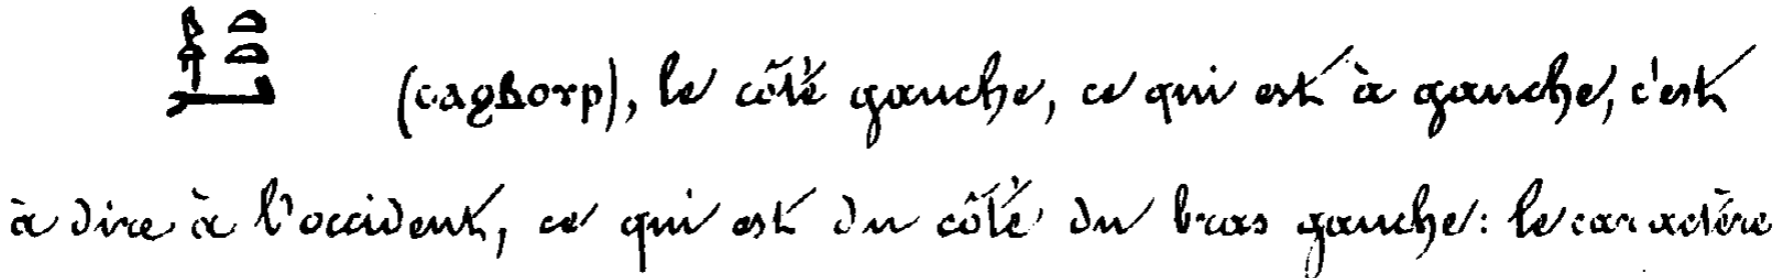 (ⲥⲁϩⲃⲟⲩⲣ), le côté gauche, ce qui est à gauche, c'est
à dire à l'occident, ce qui est du côté du bras gauche: le caractère